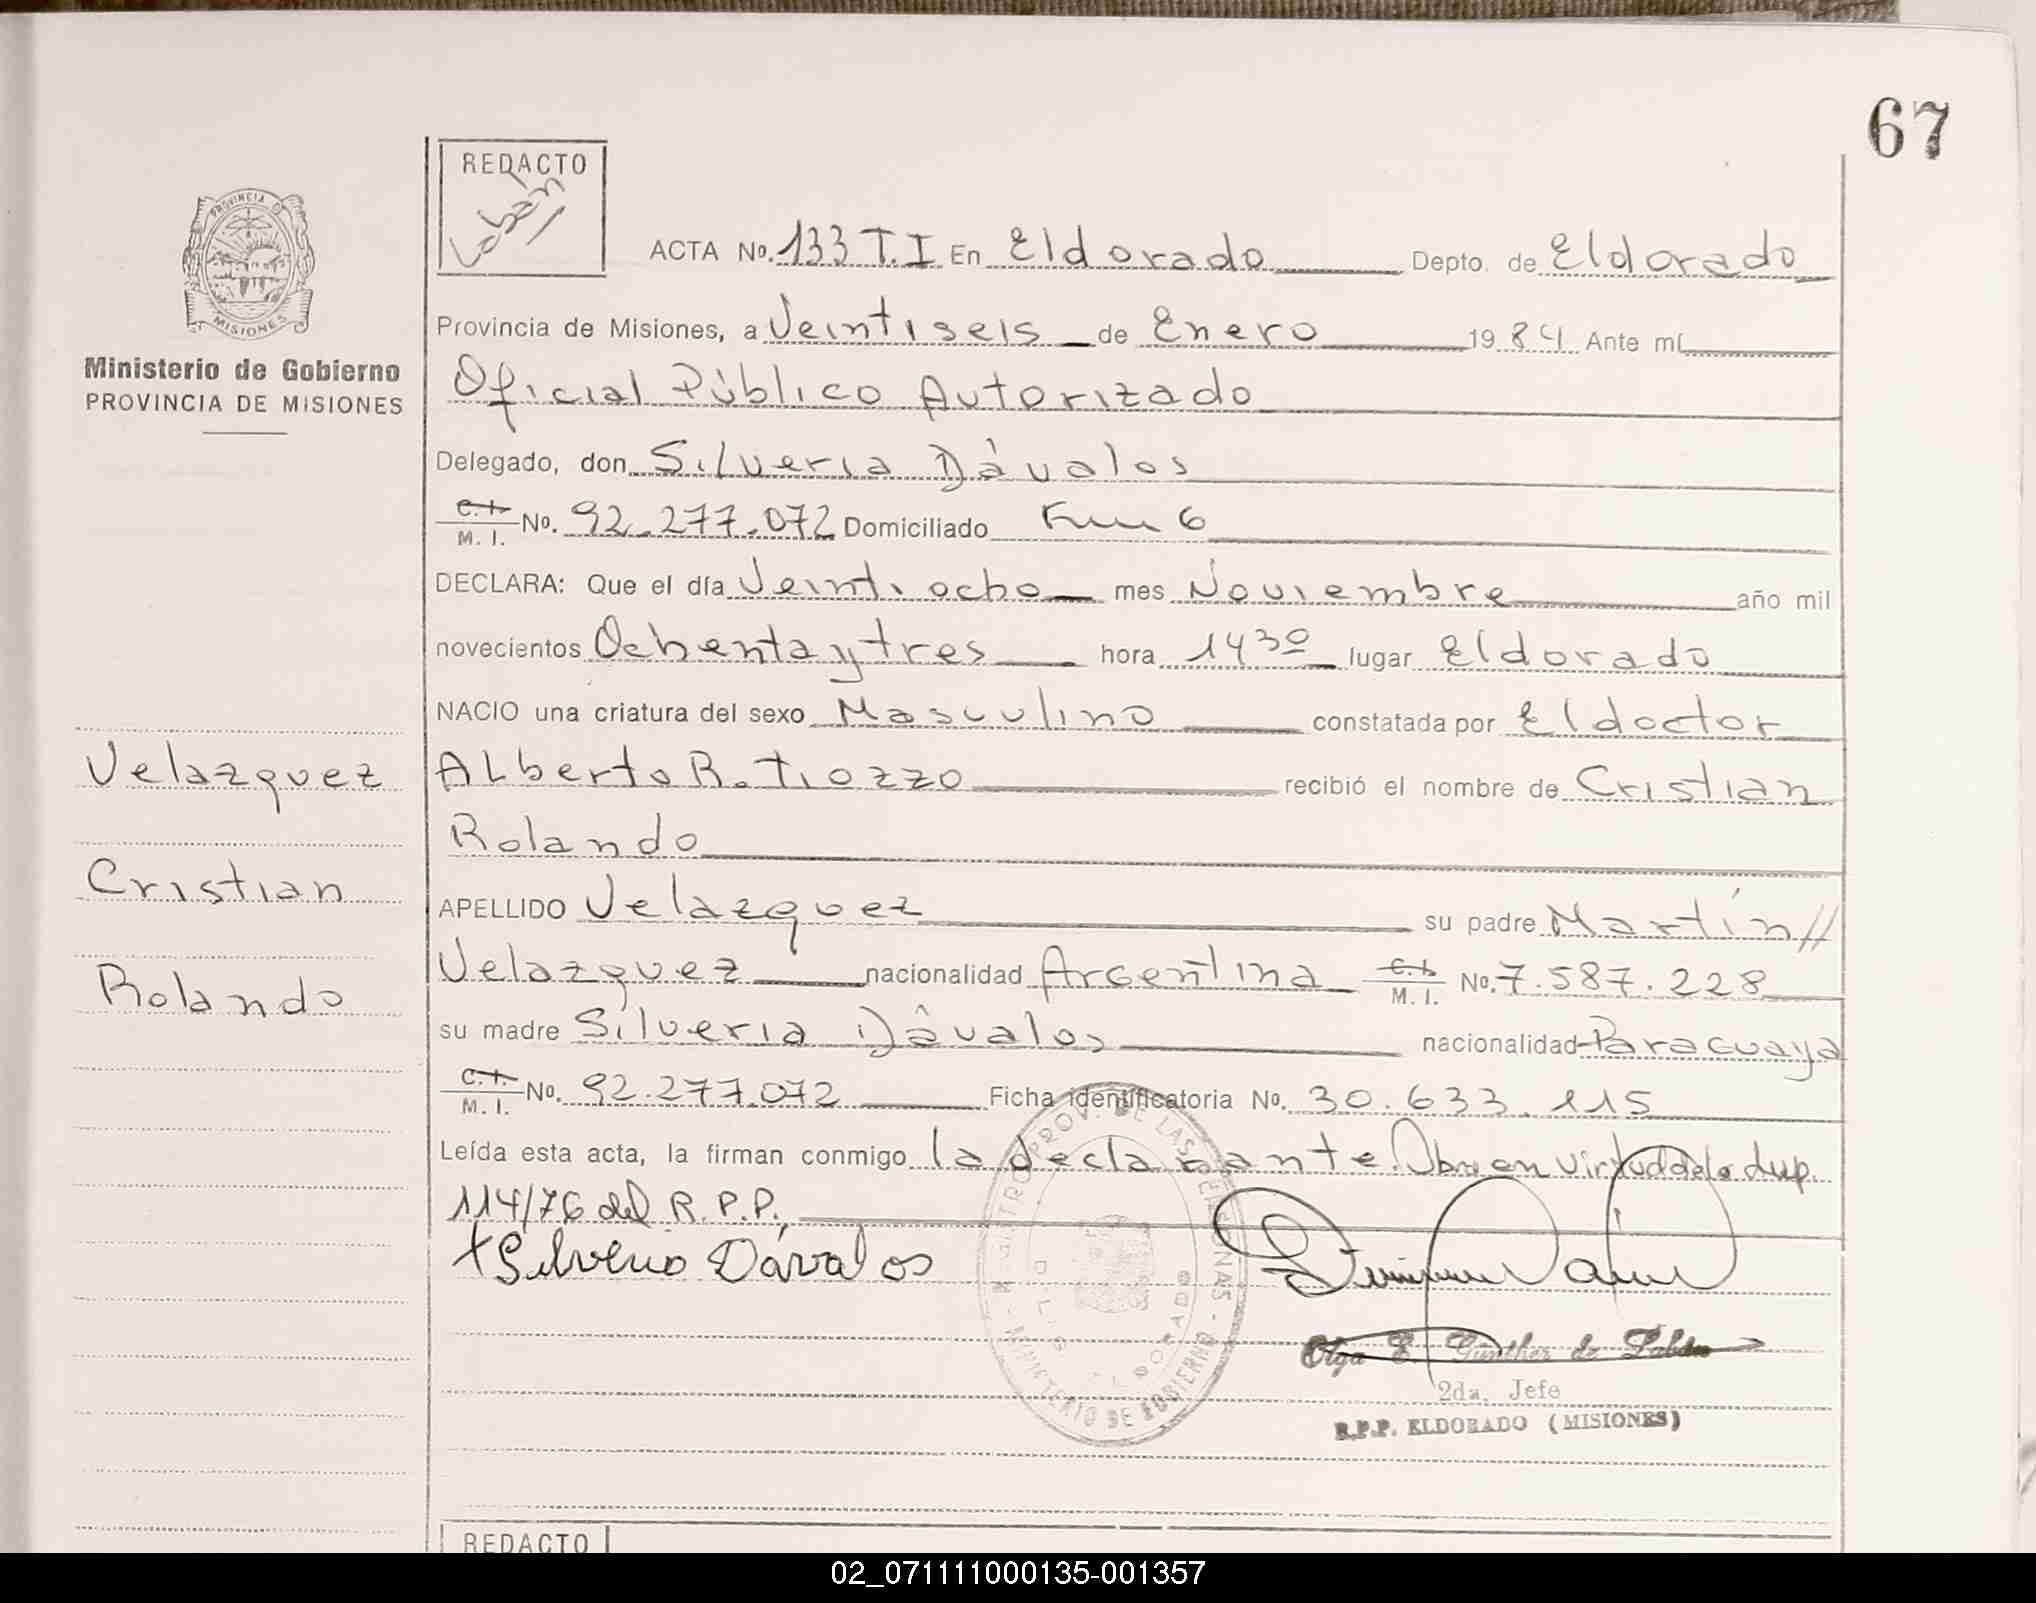 67
REDACTO
Labán
ACTA No. 133 T.I En Eldorado Depto. de Eldorado
PROVINCIA D
MISIONES
Provincia de Misiones, a Veintiseis de Enero 1984 Ante mí
Ministerio de Gobierno
PROVINCIA DE MISIONES
Oficial Público Autorizado
Delegado, don Silveria Dávalos
C.I. M. I. No. 92.277.072 Domiciliado Km 6
DECLARA: Que el día Veintiocho mes Noviembre año mil
novecientos Ochenta y tres hora 14 30 lugar Eldorado
NACIO una criatura del sexo Masculino constatada por El doctor
Velazquez
Alberto R. Tiozzo recibió el nombre de Cristian
Rolando
Cristian
APELLIDO Velazquez su padre Martín //
Velazquez nacionalidad Argentina C.I. M. I. No. 7.587.228
Rolando
su madre Silveria Dávalos nacionalidad Paraguaya
C.I. M. I. No. 92.277.072 Ficha identificatoria No. 30.633.115
Leída esta acta, la firman conmigo la declarante. Obro en virtud de la dup.
114/76 del R.P.P.
+ Silveria Dávalos
PROV. DE LAS PERSONAS - MINISTERIO DE GOBIERNO
Olga E. Günther de Labán
2da. Jefe
R.P.P. ELDORADO (MISIONES)
REDACTO
02_071111000135-001357